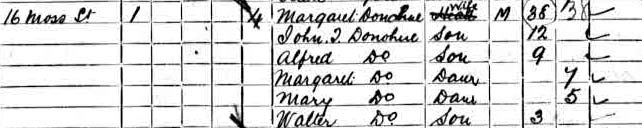 16 Moss St 1 4 Margaret Donohue Wife M 38 38
John. T. Donohue Son 12
Alfred Do Son 9
Margaret Do Daur 7
Mary Do Daur 5
Walter Do Son 3